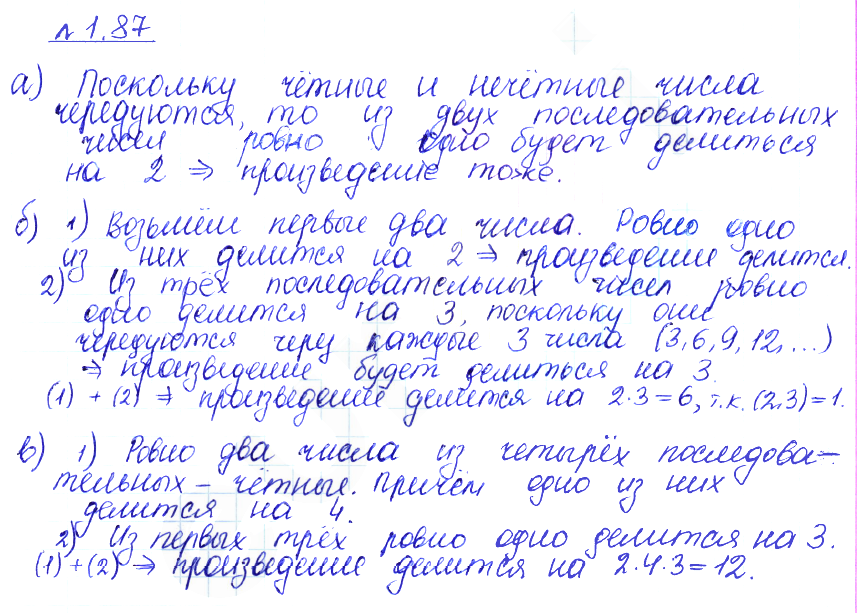 № 1.87
а) Поскольку чётные и нечётные числа
чередуются, то из двух последовательных
чисел ровно одно будет делиться
на 2 ⇒ произведение тоже.
б) 1) Возьмём первые два числа. Ровно одно
из них делится на 2 ⇒ произведение делится.
2) Из трёх последовательных чисел ровно
одно делится на 3, поскольку они
чередуются через каждые 3 числа (3, 6, 9, 12, ...)
⇒ произведение будет делиться на 3.
(1) + (2) ⇒ произведение делится на 2·3=6, т.к. (2,3)=1.
в) 1) Ровно два числа из четырёх последова-
тельных – чётные. Причём одно из них
делится на 4.
2) Из первых трёх ровно одно делится на 3.
(1)+(2) ⇒ произведение делится на 2·4·3=12.